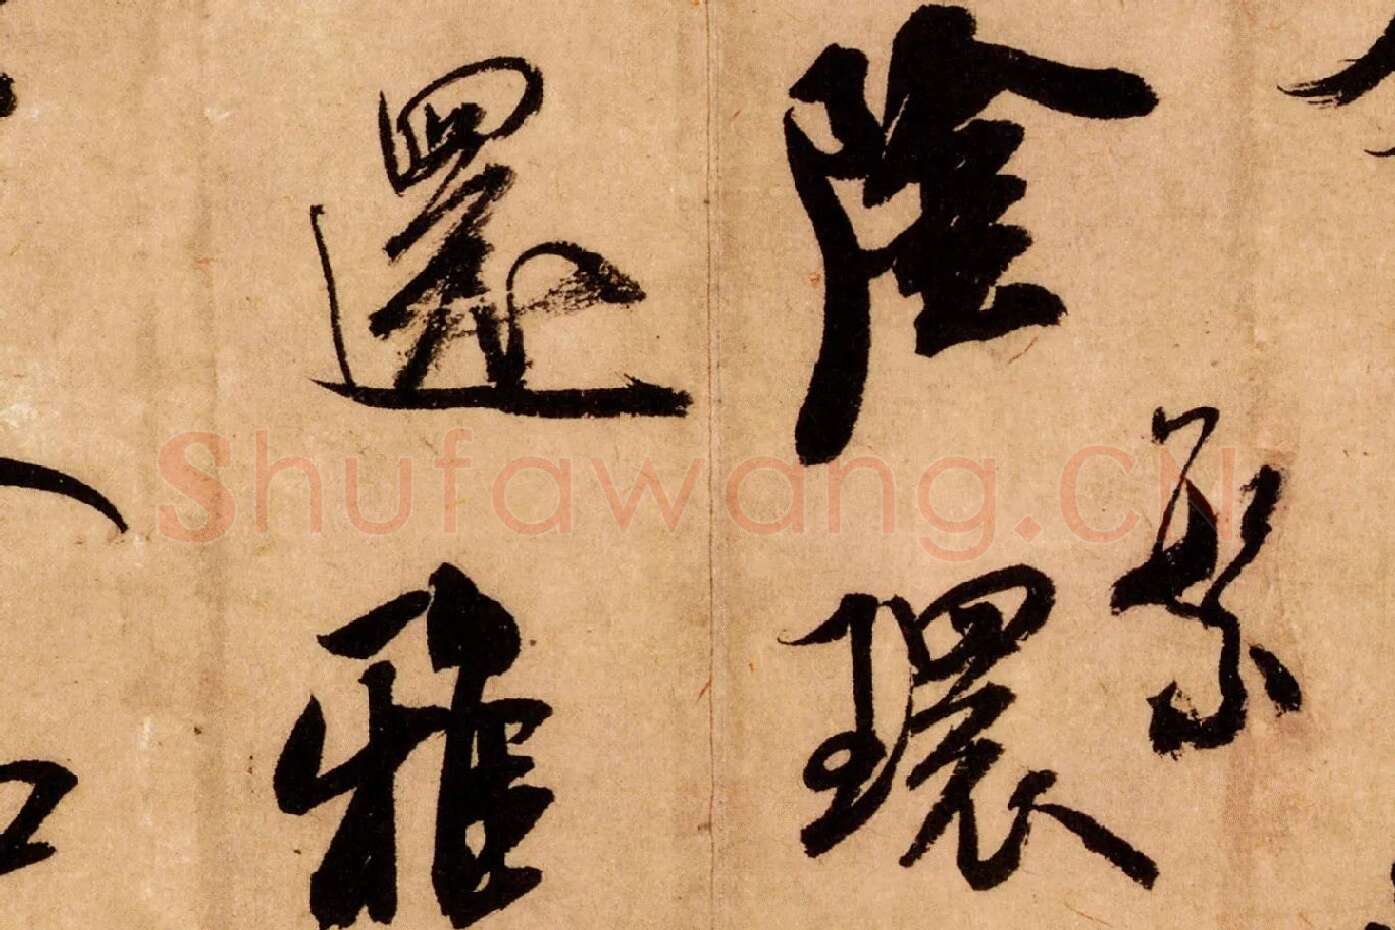 陰環
還雅
Shufawang.CN